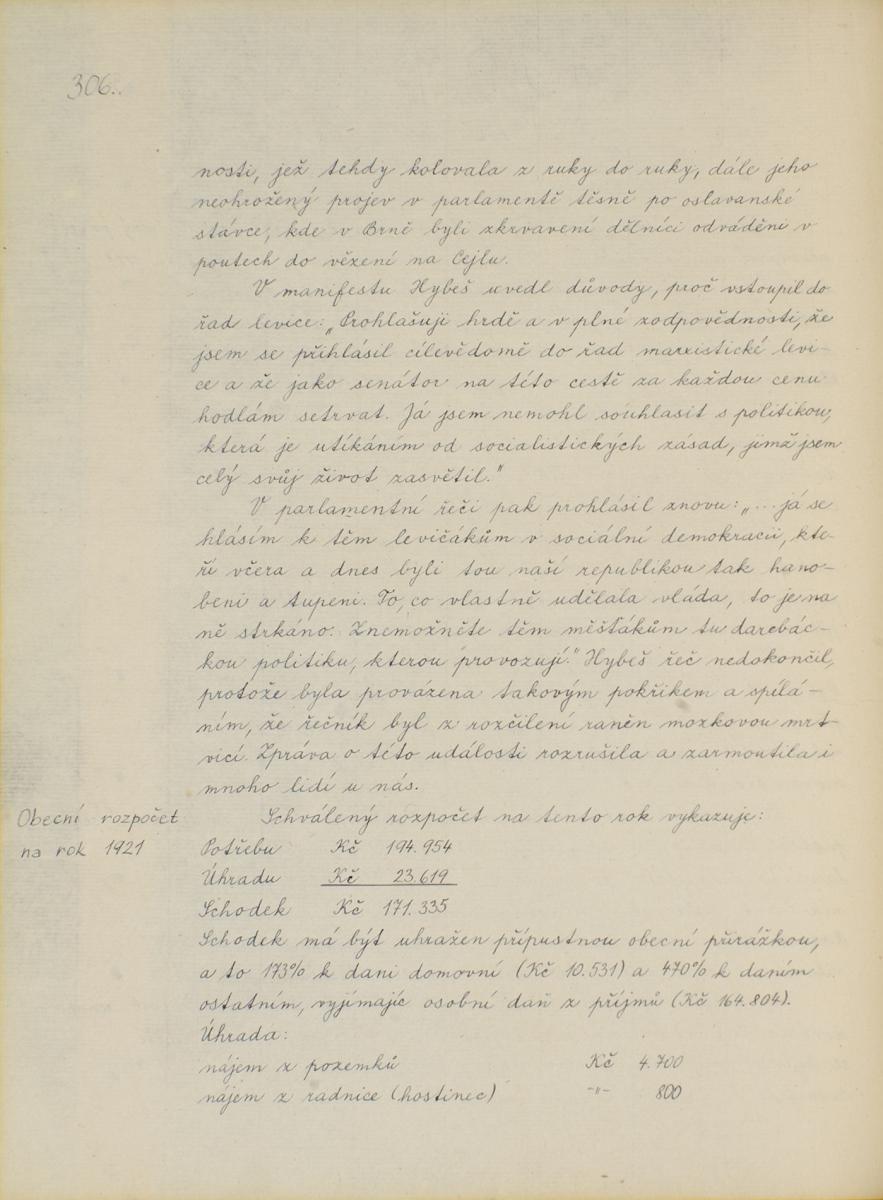 306..
nosti, jež tehdy kolovala z ruky do ruky, dále jeho
neohrožený projev v parlamentě těsně po oslavanské
stávce, kde v Brně byli zkrvavení dělníci odváděni v
poutech do vězení na Cejlu.
V manifestu Hybeš uvedl důvody, proč vstoupil do
řad levice: „Prohlašuji hrdě a v plné zodpovědnosti, že
jsem se přihlásil cílevědomě do řad marxistické levi-
ce a že jako senátor na této cestě za každou cenu
hodlám setrvat. Já jsem nemohl souhlasit s politikou,
která je utíkáním od socialistických zásad, jimž jsem
celý svůj život zasvětil."
V parlamentní řeči pak prohlásil znovu: „... já se
hlásím k těm levičákům v sociální demokracii, kte-
ří včera a dnes byli tou naší republikou tak hano-
beni a tupeni. To, co vlastně udělala vláda, to je na
ně strkáno. Znemožněte těm měšťákům tu darebác-
kou politiku, kterou provozují." Hybeš řeč nedokončil,
protože byla provázena takovým pokřikem a spílá-
ním, že řečník byl z rozčilení raněn mozkovou mrt-
vicí. Zpráva o této události rozrušila a zarmoutila i
mnoho lidí u nás.
Obecní rozpočet
na rok 1921
Schválený rozpočet na tento rok vykazuje:
Potřebu Kč 194.954
Úhradu Kč 23.619
Schodek Kč 171.335
Schodek má být uhražen přípustnou obecní přirážkou,
a to 173% k dani domovní (Kč 10.531) a 470% k daním
ostatním, vyjímajíc osobní daň z příjmů (Kč 164.804).
Úhrada:
nájem z pozemků Kč 4.700
nájem z radnice (hostinec) -"- 800